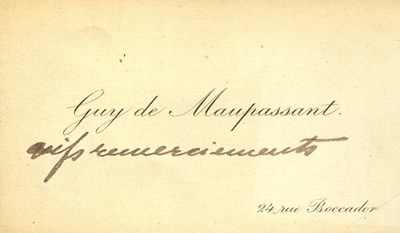 Guy de Maupassant.
vifs remerciements
24, rue Boccador